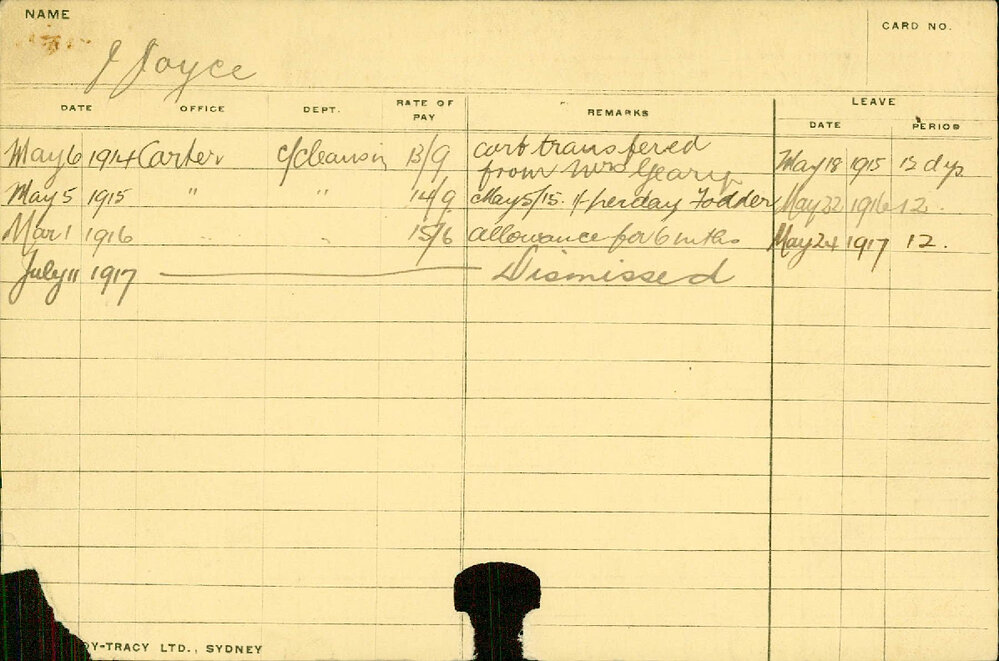 NAME
CARD NO.
J Joyce
DATE OFFICE DEPT. RATE OF PAY REMARKS LEAVE
DATE PERIOD
May 6 1914 Carter C/Cleansin 13/9 cart transfered May 18 1915 12 dys
from Mrs Geary
May 5 1915 " " 14/9 May 5/15. 1/- per day Fodder May 22 1916 12.
Mar 1 1916 " " 15/6 allowance for 6 mths May 24 1917 12.
July 11 1917 Dismissed
DY-TRACY LTD., SYDNEY